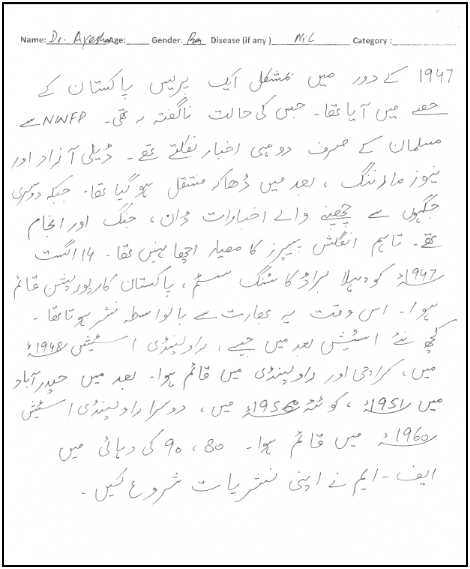 Name: Dr. Ayesha Age: Gender: Disease (if any) Nil Category :
1947 کے دور میں بمشکل ایک پریس پاکستان کے
حصے میں آیا تھا۔ جس کی حالت ناگفتہ بہ تھی۔ NWFP سے
مسلمان کے صرف دو ہی اخبار نکلتے تھے۔ ڈیلی آزاد اور
نیوز مارننگ، بعد میں ڈھاکہ منتقل ہو گیا تھا۔ جبکہ دوسری
جگہوں سے چھپنے والے اخبارات ڈان، جنگ اور انجام
تھے۔ تاہم انگلش پیپرز کا معیار اچھا نہیں تھا۔ 14 اگست
1947ء کو پہلا براڈ کاسٹنگ سسٹم، پاکستان کارپوریشن قائم
ہوا۔ اس وقت یہ بھارت سے بالواسطہ نشر ہوتا تھا۔
کچھ نئے اسٹیشن بعد میں جیسے، راولپنڈی اسٹیشن 1948ء
میں، کراچی اور راولپنڈی میں قائم ہوا۔ بعد میں حیدرآباد
میں 1951ء، کوئٹہ 1956ء میں، دوسرا راولپنڈی اسٹیشن
1960ء میں قائم ہوا۔ 80، 90 کی دہائی میں
ایف - ایم نے اپنی نشریات شروع کیں۔